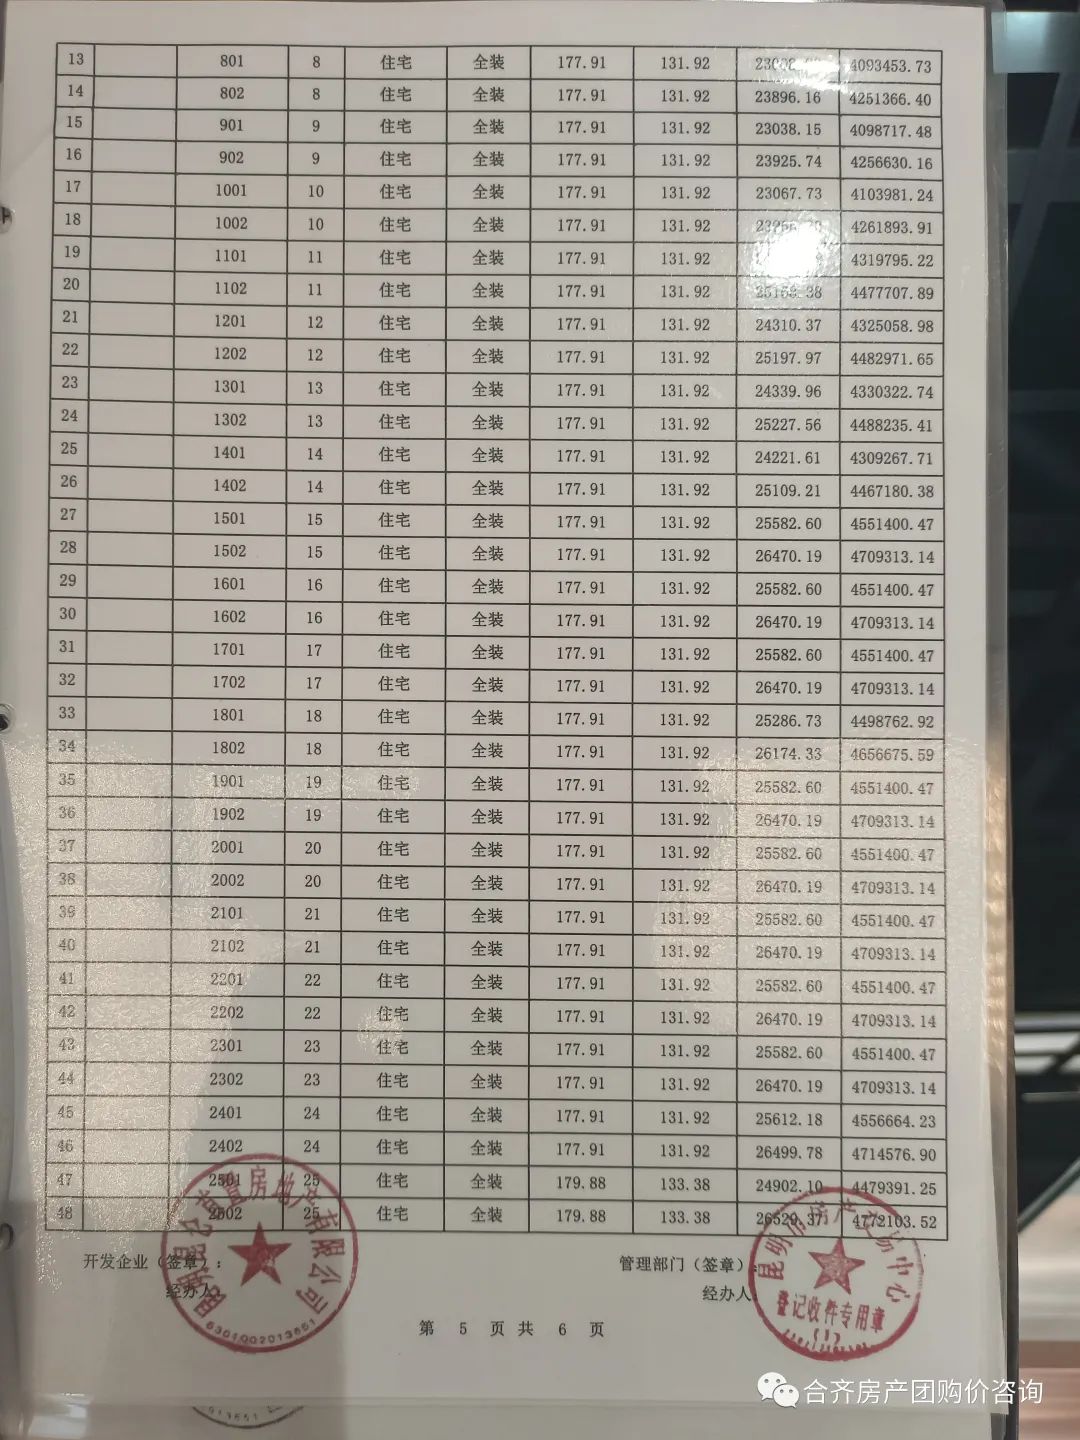 13 801 8 住宅 全装 177.91 131.92 4093453.73
14 802 8 住宅 全装 177.91 131.92 23896.16 4251366.40
15 901 9 住宅 全装 177.91 131.92 23038.15 4098717.48
16 902 9 住宅 全装 177.91 131.92 23925.74 4256630.16
17 1001 10 住宅 全装 177.91 131.92 23067.73 4103981.24
18 1002 10 住宅 全装 177.91 131.92 4261893.91
19 1101 11 住宅 全装 177.91 131.92 4319795.22
20 1102 11 住宅 全装 177.91 131.92 25168.38 4477707.89
21 1201 12 住宅 全装 177.91 131.92 24310.37 4325058.98
22 1202 12 住宅 全装 177.91 131.92 25197.97 4482971.65
23 1301 13 住宅 全装 177.91 131.92 24339.96 4330322.74
24 1302 13 住宅 全装 177.91 131.92 25227.56 4488235.41
25 1401 14 住宅 全装 177.91 131.92 24221.61 4309267.71
26 1402 14 住宅 全装 177.91 131.92 25109.21 4467180.38
27 1501 15 住宅 全装 177.91 131.92 25582.60 4551400.47
28 1502 15 住宅 全装 177.91 131.92 26470.19 4709313.14
29 1601 16 住宅 全装 177.91 131.92 25582.60 4551400.47
30 1602 16 住宅 全装 177.91 131.92 26470.19 4709313.14
31 1701 17 住宅 全装 177.91 131.92 25582.60 4551400.47
32 1702 17 住宅 全装 177.91 131.92 26470.19 4709313.14
33 1801 18 住宅 全装 177.91 131.92 25286.73 4498762.92
34 1802 18 住宅 全装 177.91 131.92 26174.33 4656675.59
35 1901 19 住宅 全装 177.91 131.92 25582.60 4551400.47
36 1902 19 住宅 全装 177.91 131.92 26470.19 4709313.14
37 2001 20 住宅 全装 177.91 131.92 25582.60 4551400.47
38 2002 20 住宅 全装 177.91 131.92 26470.19 4709313.14
39 2101 21 住宅 全装 177.91 131.92 25582.60 4551400.47
40 2102 21 住宅 全装 177.91 131.92 26470.19 4709313.14
41 2201 22 住宅 全装 177.91 131.92 25582.60 4551400.47
42 2202 22 住宅 全装 177.91 131.92 26470.19 4709313.14
43 2301 23 住宅 全装 177.91 131.92 25582.60 4551400.47
44 2302 23 住宅 全装 177.91 131.92 26470.19 4709313.14
45 2401 24 住宅 全装 177.91 131.92 25612.18 4556664.23
46 2402 24 住宅 全装 177.91 131.92 26499.78 4714576.90
47 2501 25 住宅 全装 179.88 133.38 24902.10 4479391.25
48 2502 25 住宅 全装 179.88 133.38 26529.37 4772103.52
开发企业（签章）： 管理部门（签章）：
经办人 经办人
房地产有限公司
昆明市房产交易中心
登记收件专用章
(1)
第 5 页 共 6 页
合齐房产团购价咨询